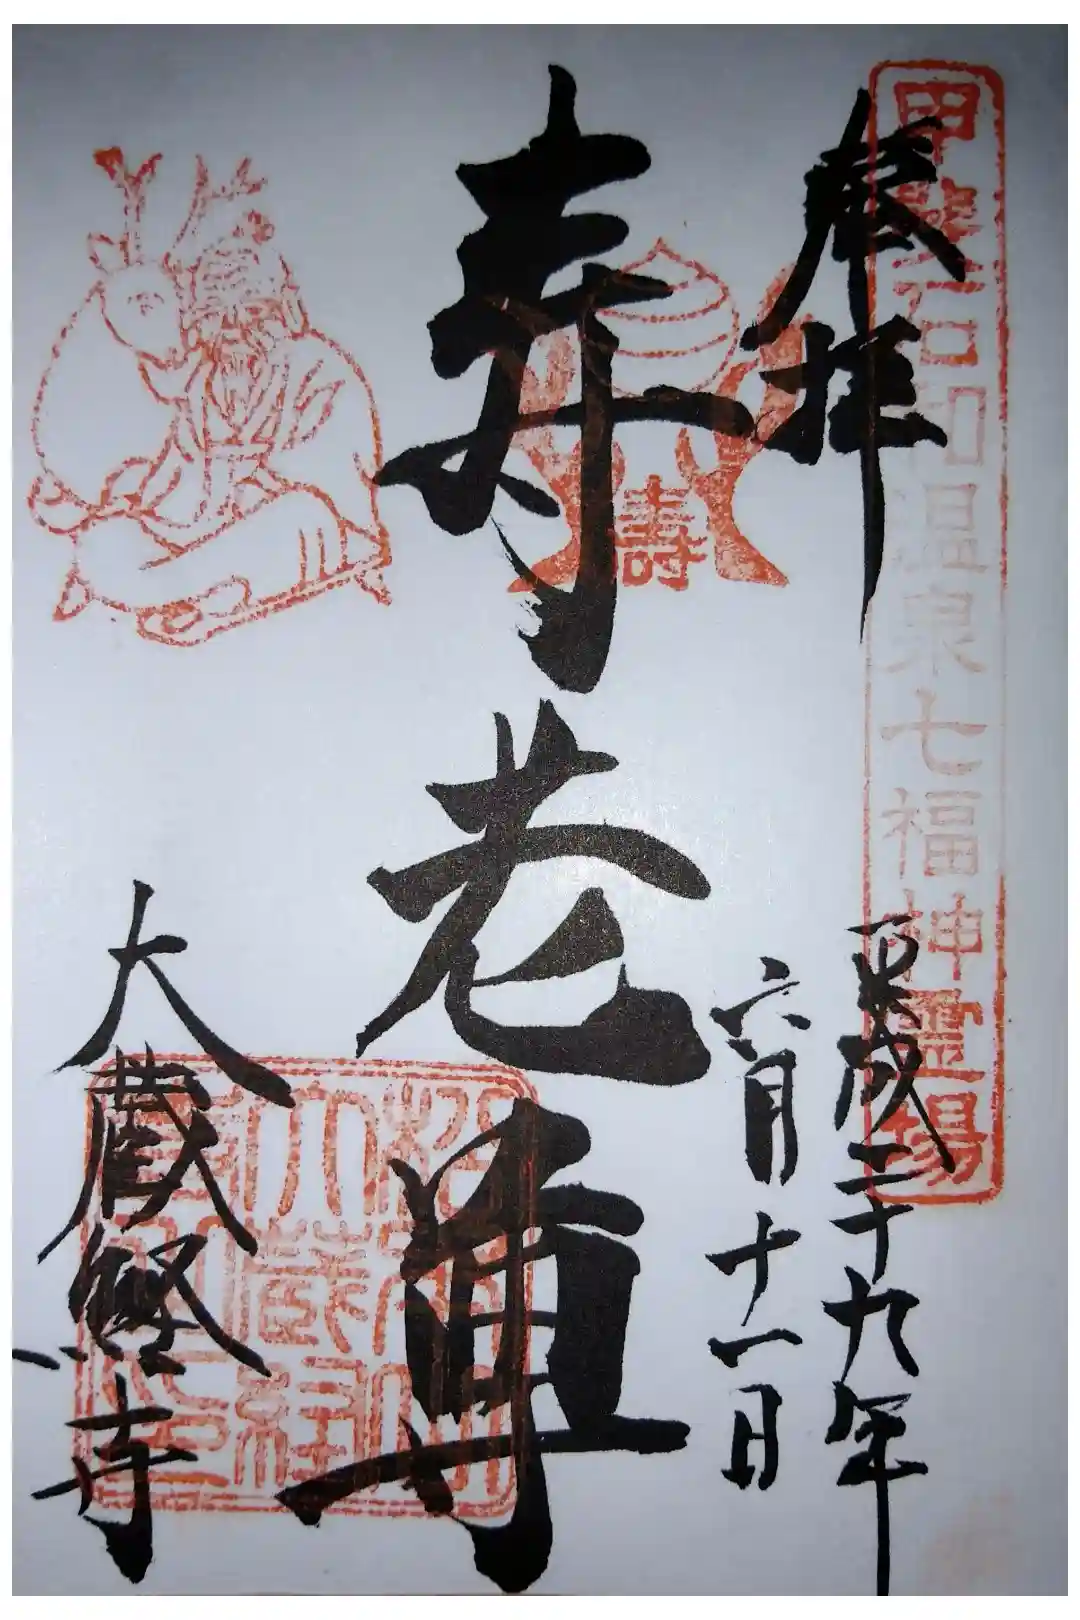 甲斐石和温泉七福神霊場
奉拝
平成二十九年
六月十一日
壽
寿老尊
大蔵経寺